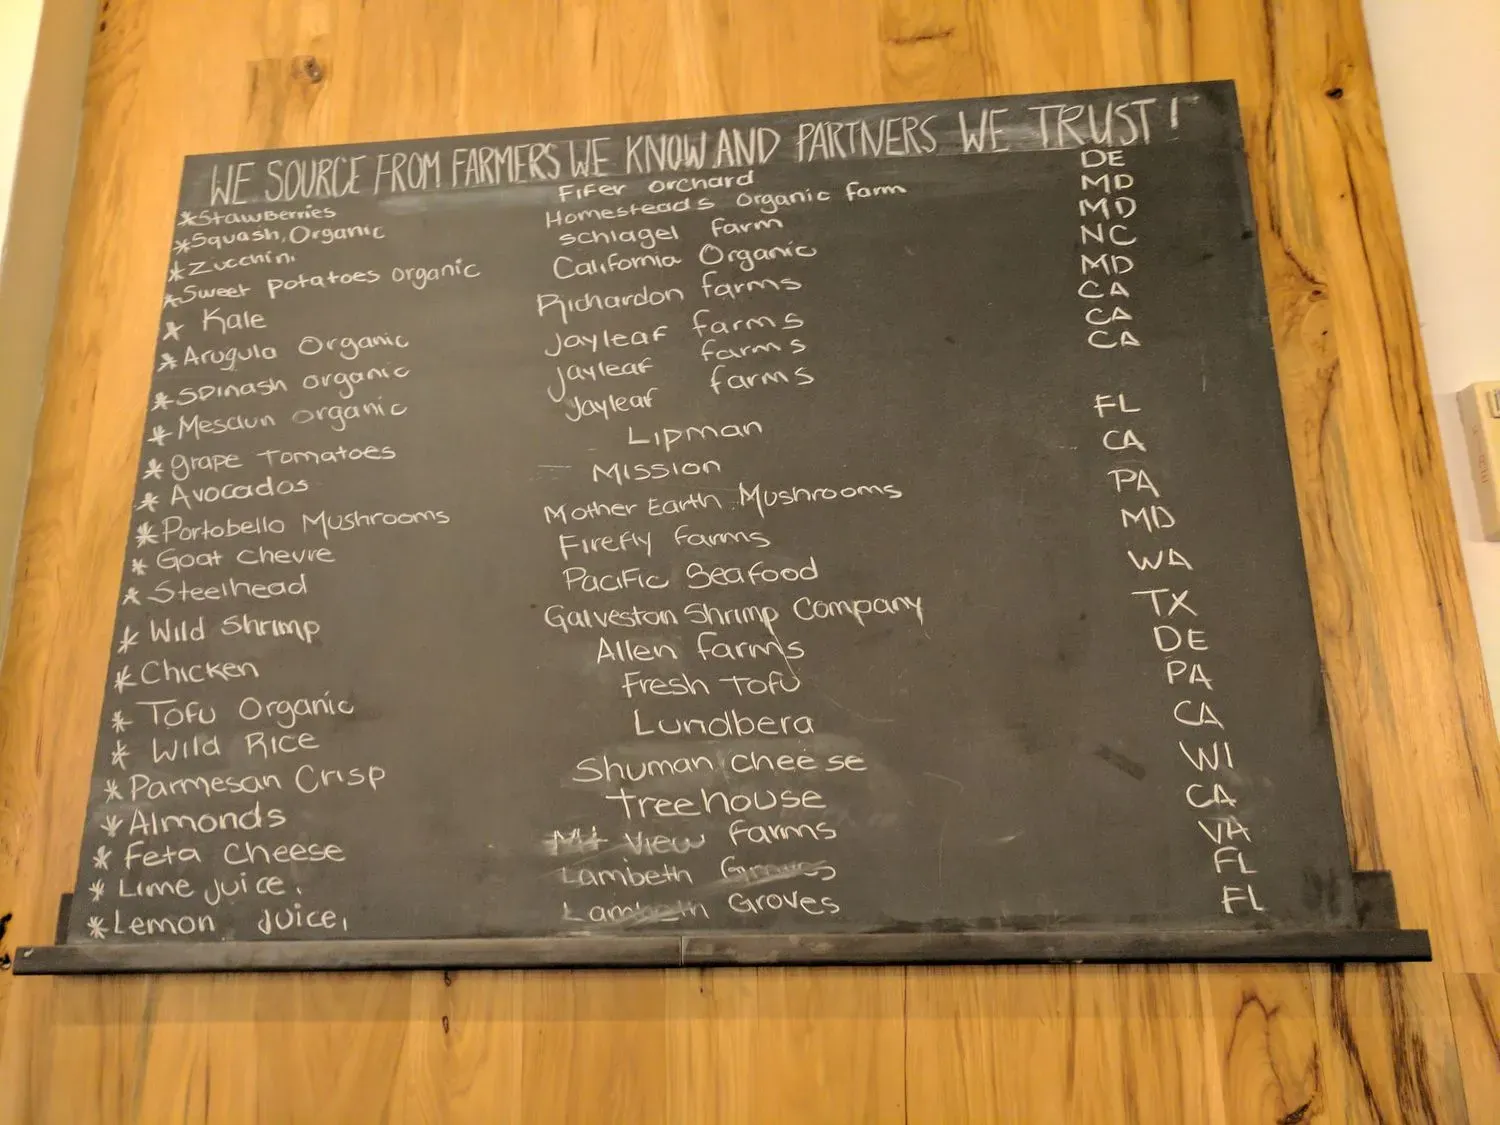 WE SOURCE FROM FARMERS WE KNOW AND PARTNERS WE TRUST!
*Stawberries Fifer orchard DE
*Squash, Organic Homesteads Organic farm MD
*Zucchini Schlagel farm MD
*Sweet potatoes organic California Organic NC
* Kale Richardon farms MD
*Arugula Organic Jayleaf farms CA
*Spinash organic Jayleaf farms CA
*Mesclun organic Jayleaf farms CA
*grape Tomatoes Lipman FL
*Avocados Mission CA
*Portobello Mushrooms Mother Earth Mushrooms PA
*Goat chevre Firefly farms MD
*Steelhead Pacific Seafood WA
* Wild Shrimp Galveston Shrimp Company TX
*Chicken Allen farms DE
* Tofu Organic Fresh Tofu PA
* Wild Rice Lundbera CA
*Parmesan Crisp Shuman cheese WI
*Almonds Treehouse CA
* Feta Cheese Mt View farms VA
* Lime juice. Lambeth Groves FL
*Lemon juice, Lambeth Groves FL